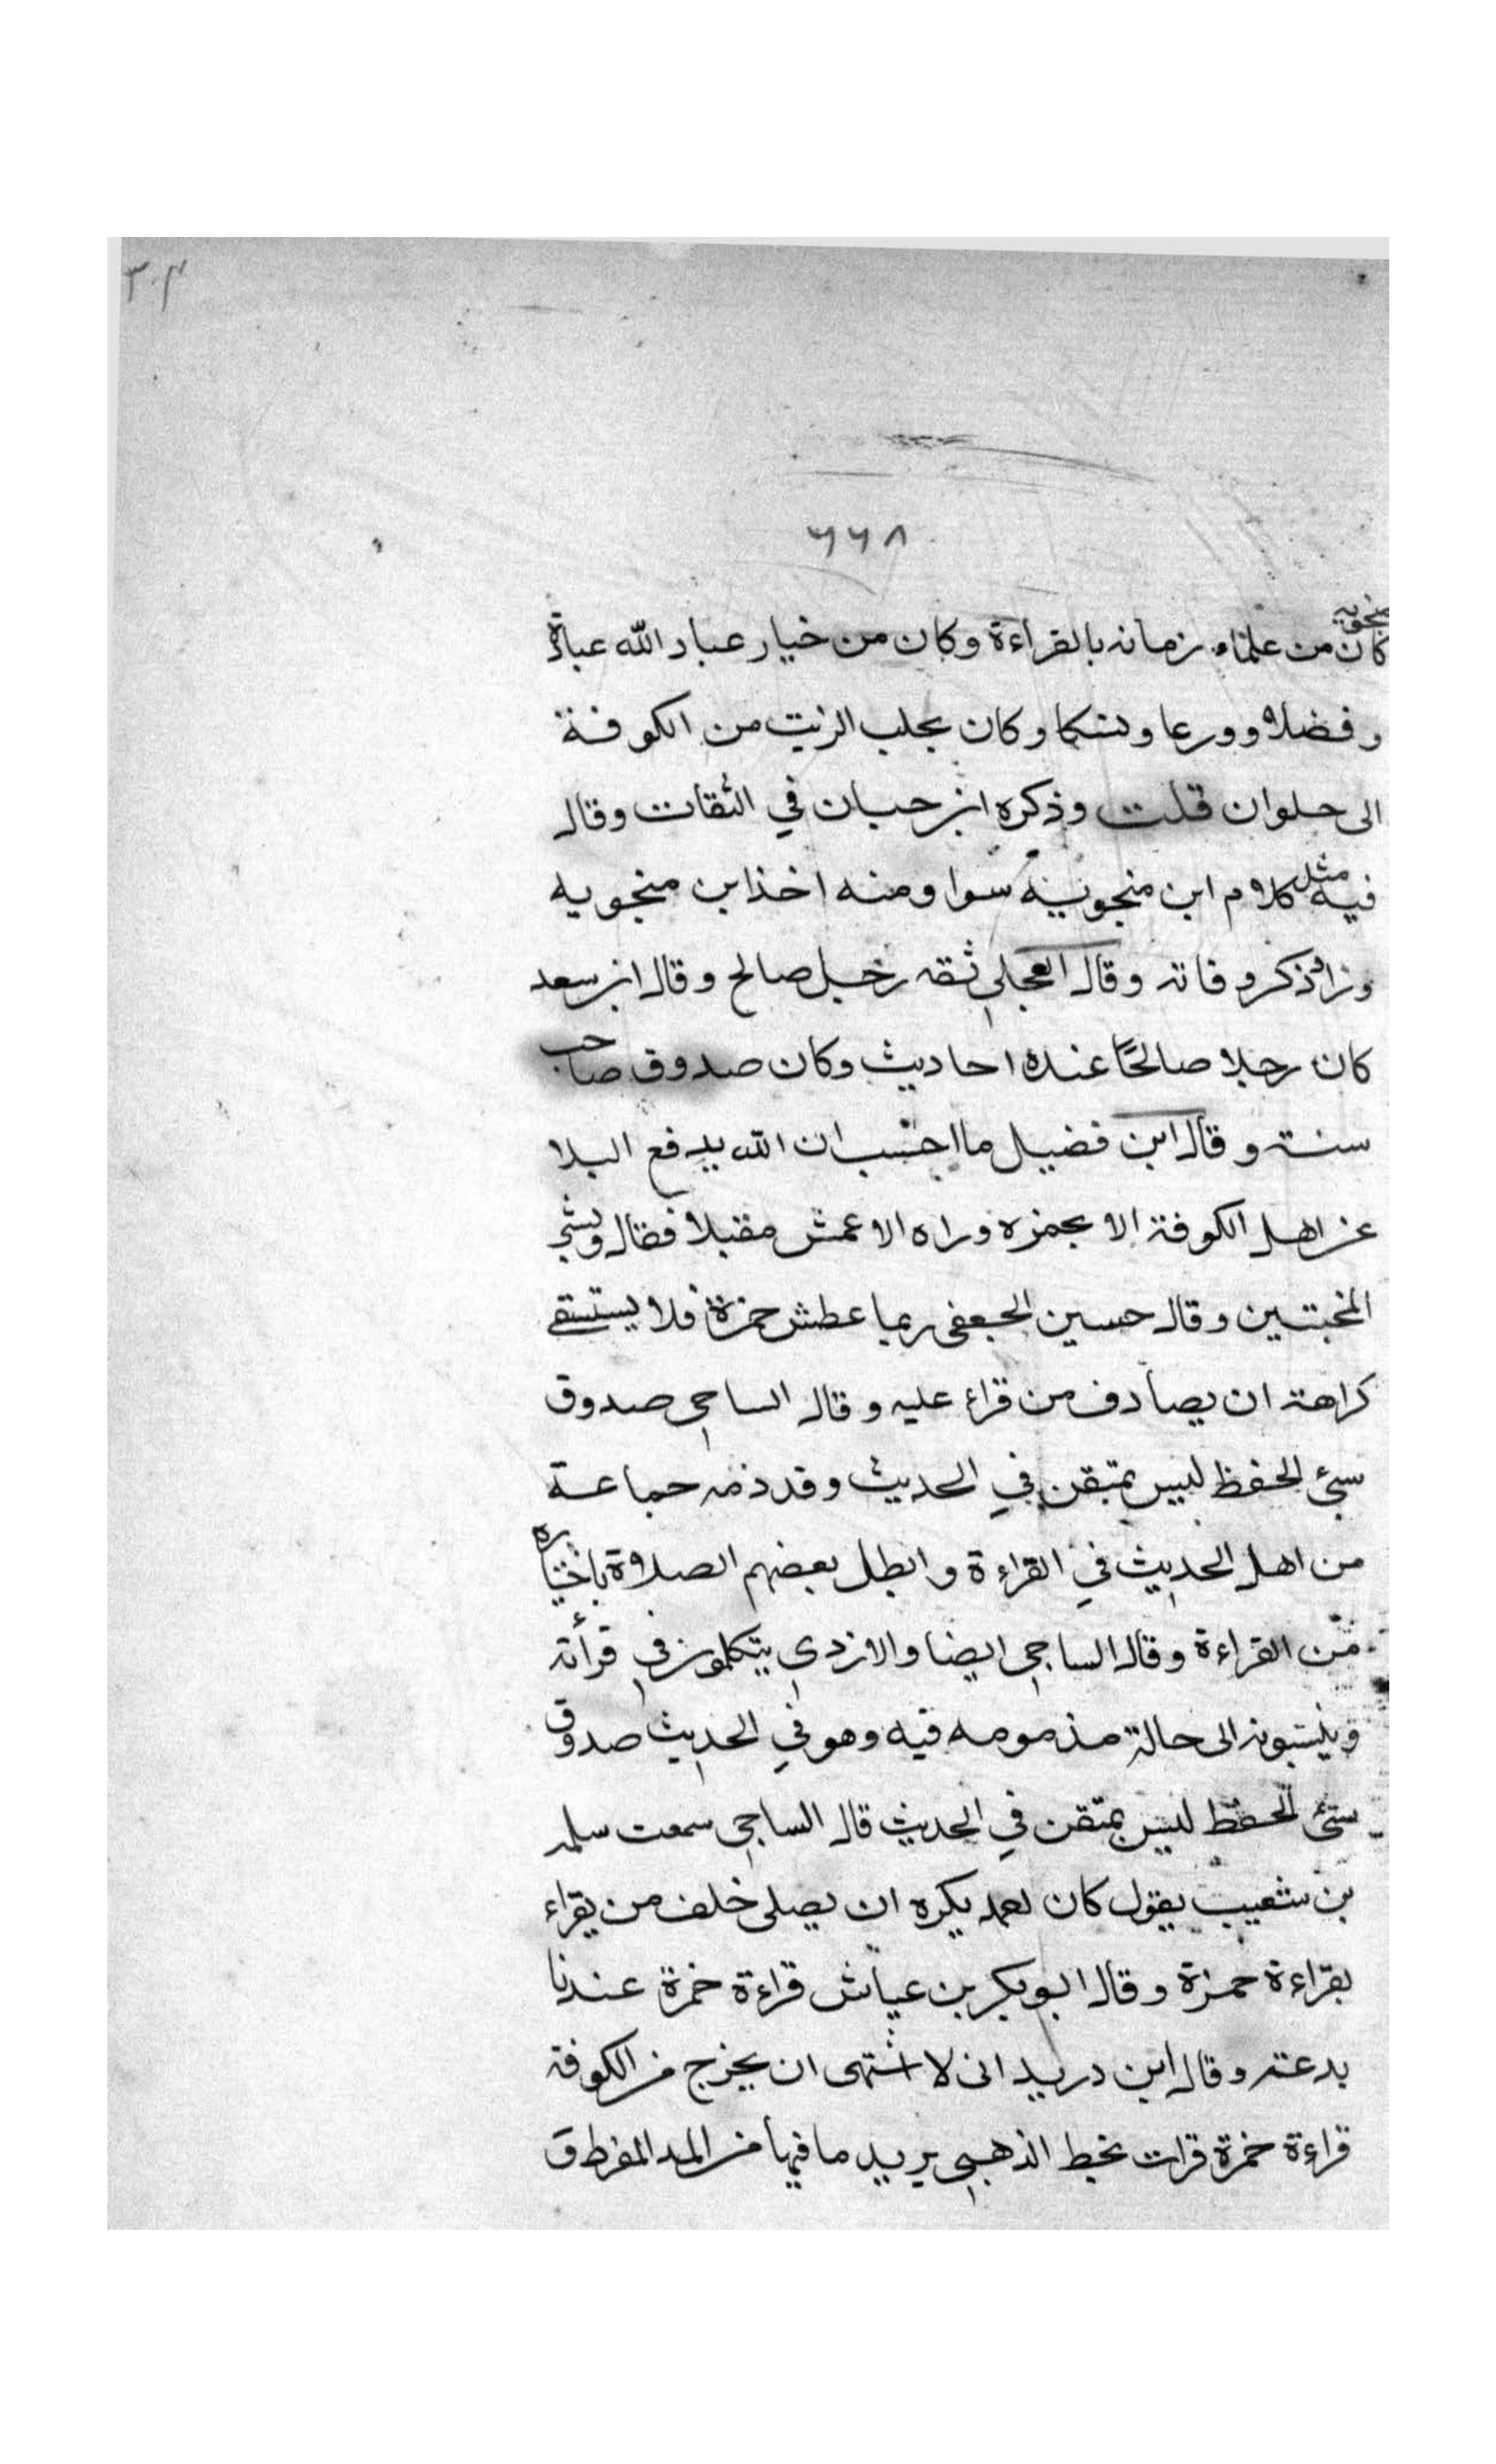 ٣٠٤
٦٦٨
منجويه
كان من علماء زمانه بالقراءة وكان من خيار عباد الله عبادة
وفضلا وورعا ونسكا وكان يجلب الزيت من الكوفة
الى حلوان قلت وذكره ابن حبان في الثقات وقال
فيه مثل كلام ابن منجويه سوا ومنه اخذ ابن منجويه
وزاد ذكر وفاته وقال العجلي ثقه رجل صالح وقال ابن سعد
كان رجلا صالحًا عنده احاديث وكان صدوق صاحب
سنة وقال ابن فضيل ما احسب ان الله يدفع البلا
عن اهل الكوفة الا بحمزه وراه الاعمش مقبلا فقال وبشر
المخبتين وقال حسين الجعفى ربما عطش حمزة فلا يستسقى
كراهة ان يصادف من قراء عليه وقال الساجى صدوق
سيئ الحفظ ليس بمتقن في الحديث وقد ذمه جماعة
من اهل الحديث في القراءة وابطل بعضهم الصلاة باختياره
من القراءة وقال الساجى ايضا والازدي يتكلمون في قرأته
وينسبونه الى حالة مذمومه فيه وهو في الحديث صدوق
سيئ الحفظ ليس بمتقن في الحديث قال الساجي سمعت سلمه
بن شعيب يقول كان احمد يكره ان يصلى خلف من يقراء
بقراءة حمزة وقال ابو بكر بن عياش قراءة حمزة عندنا
بدعة وقال ابن دريد انى لا اشتهى ان يخرج من الكوفة
قراءة حمزة قرات بخط الذهبي يريد ما فيها من المد المفرط و